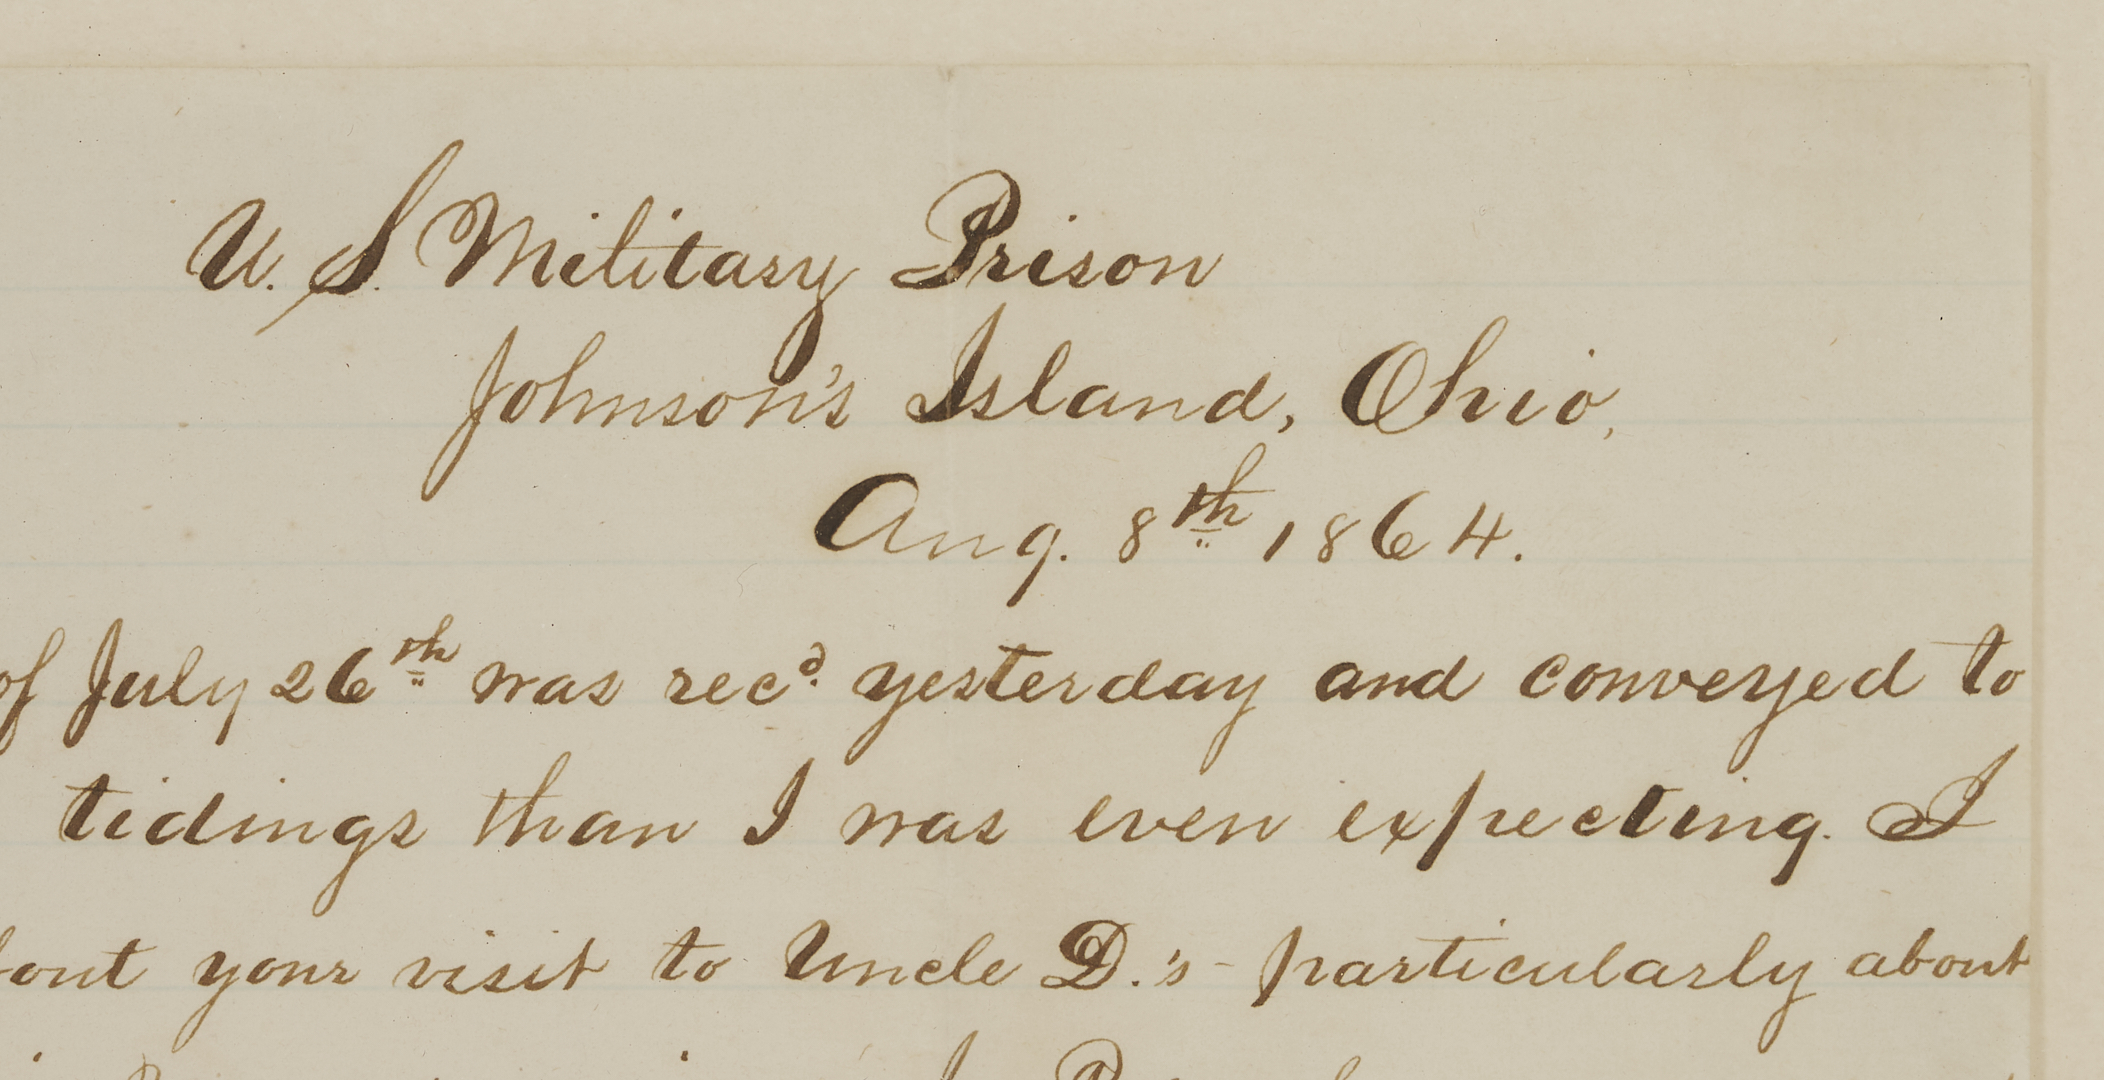 U. S. Military Prison
Johnson's Island, Ohio,
Aug. 8th 1864.
of July 26th was recd. yesterday and conveyed to
tidings than I was even expecting. I
your visit to Uncle D.'s - particularly about